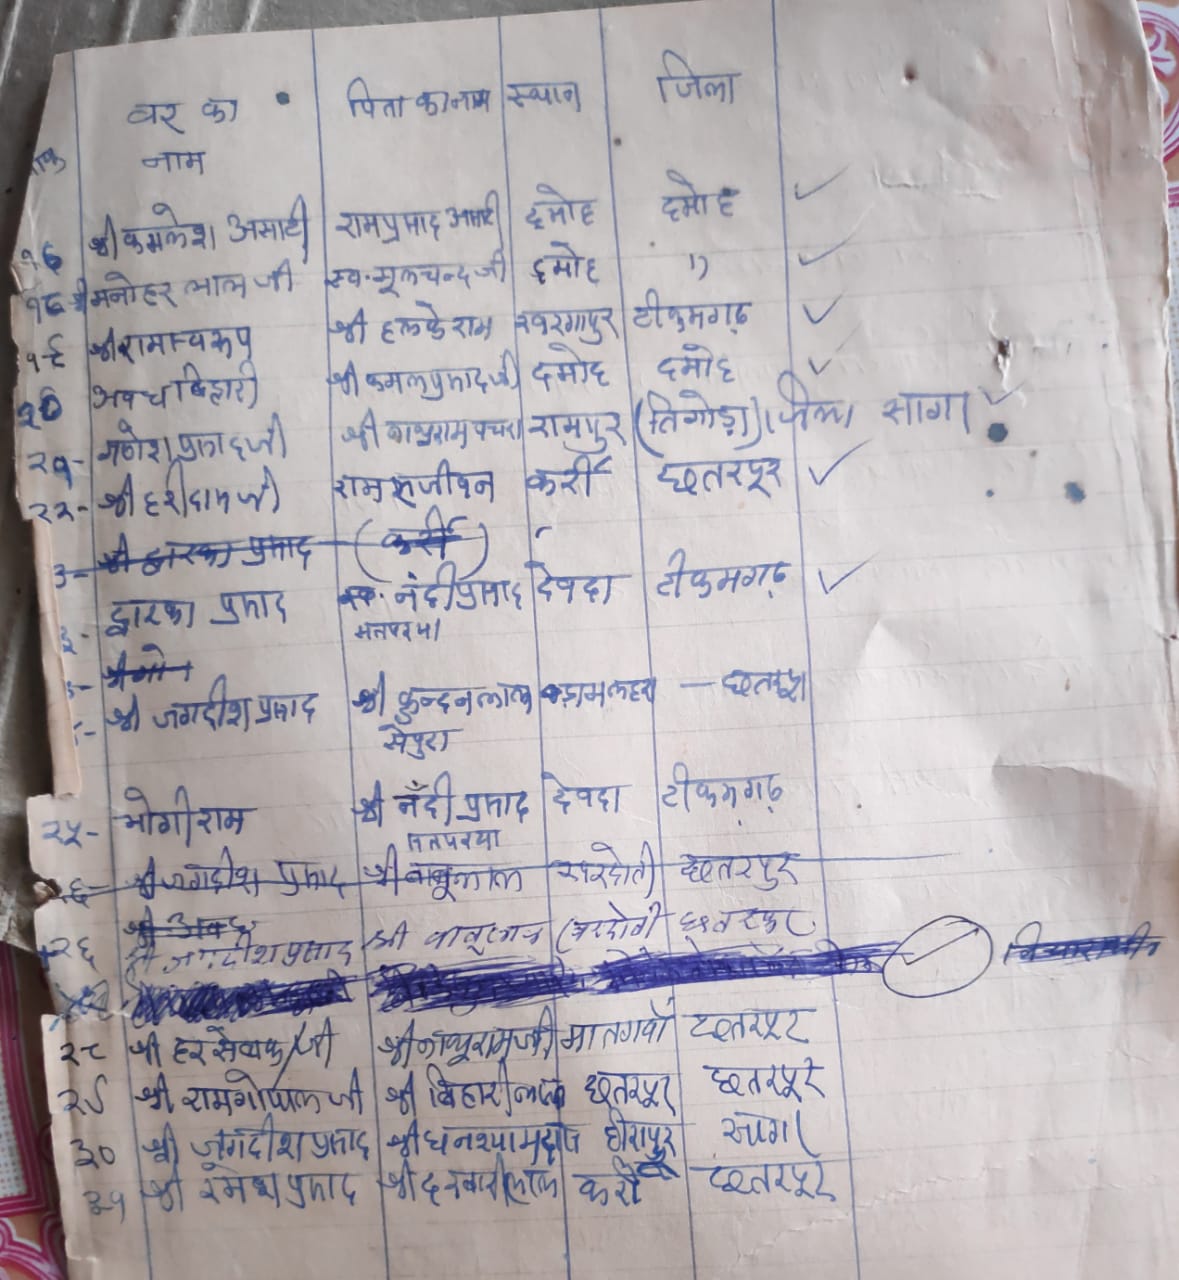 वर का पिता का नाम स्थान जिला
नाम
श्री कमलेश असाटी रामप्रसाद असाटी दमोह दमोह
१८ श्री मनोहर लाल जी स्व. मूलचन्द जी दमोह "
१९ श्री रामस्वरूप श्री हल्के राम खरगापुर टीकमगढ़
२० अवध बिहारी श्री कमलप्रसाद जी दमोह दमोह
२१- गणेश प्रसाद जी श्री रामपुर (तिगोड़ा) जिला सागर
२२- श्री हरीदास जी राम सजीवन कर्री छतरपुर
३- श्री द्वारका प्रसाद (कर्री)
द्वारका प्रसाद स्व. नंदी प्रसाद देवदा टीकमगढ़
सतपरया
श्री जगदीश प्रसाद श्री कुन्दनलाल बड़ामलहरा — छतरपुर
सेपुरा
२५- मोगीराम श्री नंदी प्रसाद देवदा टीकमगढ़
सतपरया
२६- श्री जगदीश प्रसाद श्री बाबूलाल खरदोती छतरपुर
२६ श्री जगदीश प्रसाद श्री बाबूलाल खरदोती छतरपुर
२८ श्री हर सेवक जी श्री नाथूराम जी मातगवाँ छतरपुर
२९ श्री रामगोपाल जी श्री बिहारीलाल छतरपुर छतरपुर
३० श्री जगदीश प्रसाद श्री घनश्यामदास हीरापुर सागर
३१ श्री रमेश प्रसाद श्री दरबारीलाल कर्री छतरपुर